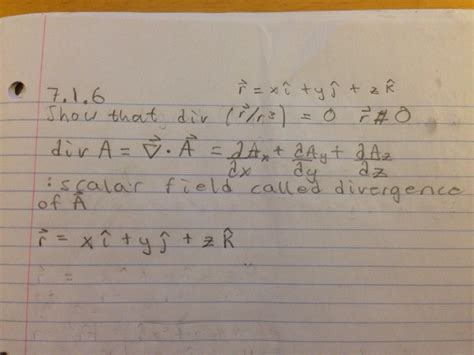 7.1.6 r⃗ = xî + yĵ + zk̂
Show that div (r⃗/r³) = 0 r⃗ ≠ 0
div A = ∇⃗ · A⃗ = ∂Ax/∂x + ∂Ay/∂y + ∂Az/∂z
: scalar field called divergence
of A⃗
r⃗ = xî + yĵ + zk̂
=